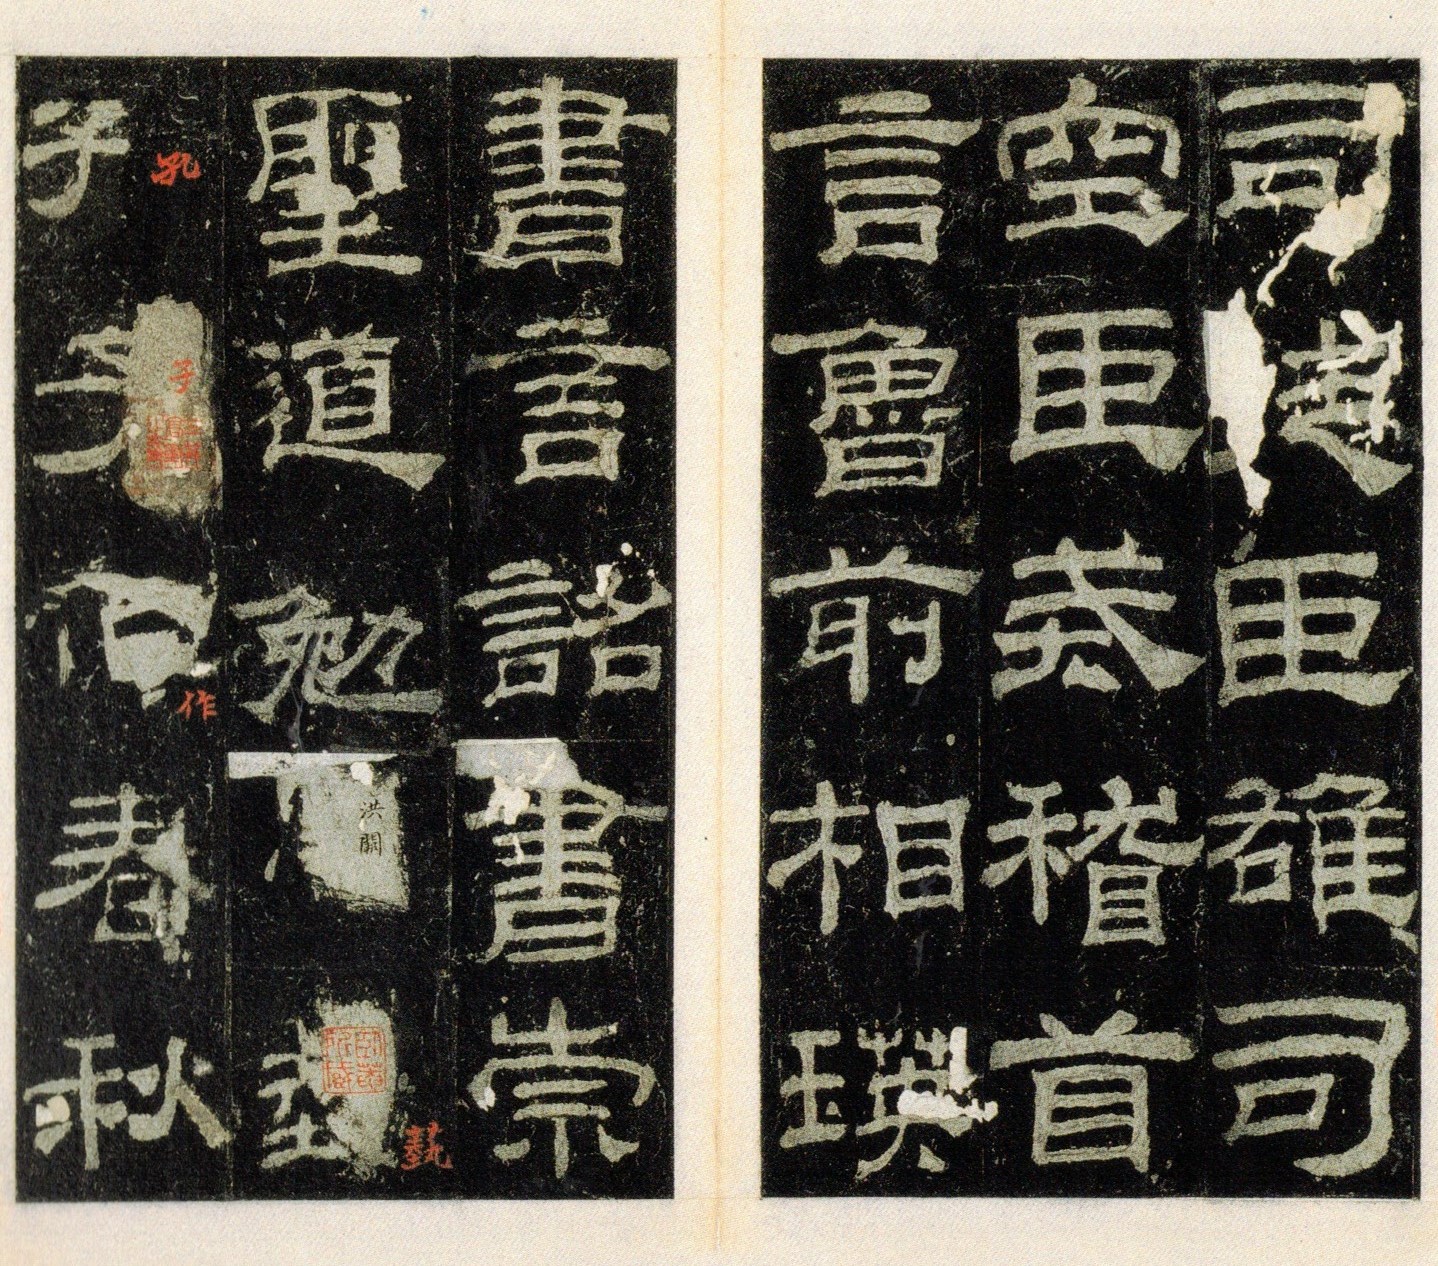 司徒臣雄司
空臣戒稽首
言魯前相瑛
書言詔書崇
聖道勉藝
洪闕
藝
孔子作春秋
孔
子
作